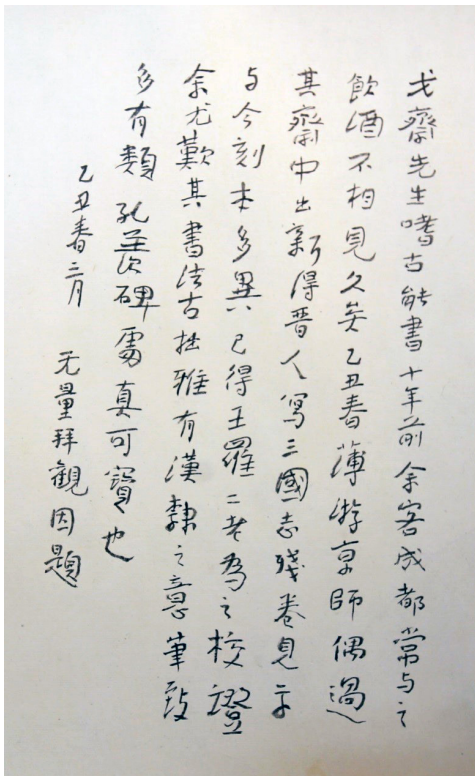 戈齋先生嗜古能書十年前余客成都常与之
飲酒不相見久矣乙丑春薄游京師偶過
其齋中出新得晉人寫三國志殘卷見示
与今刻本多異已得王羅二老為之校證
余尤歎其書法古拙雅有漢隸之意筆致
多有類孔羨碑處真可寶也
乙丑春三月 无量拜觀因題